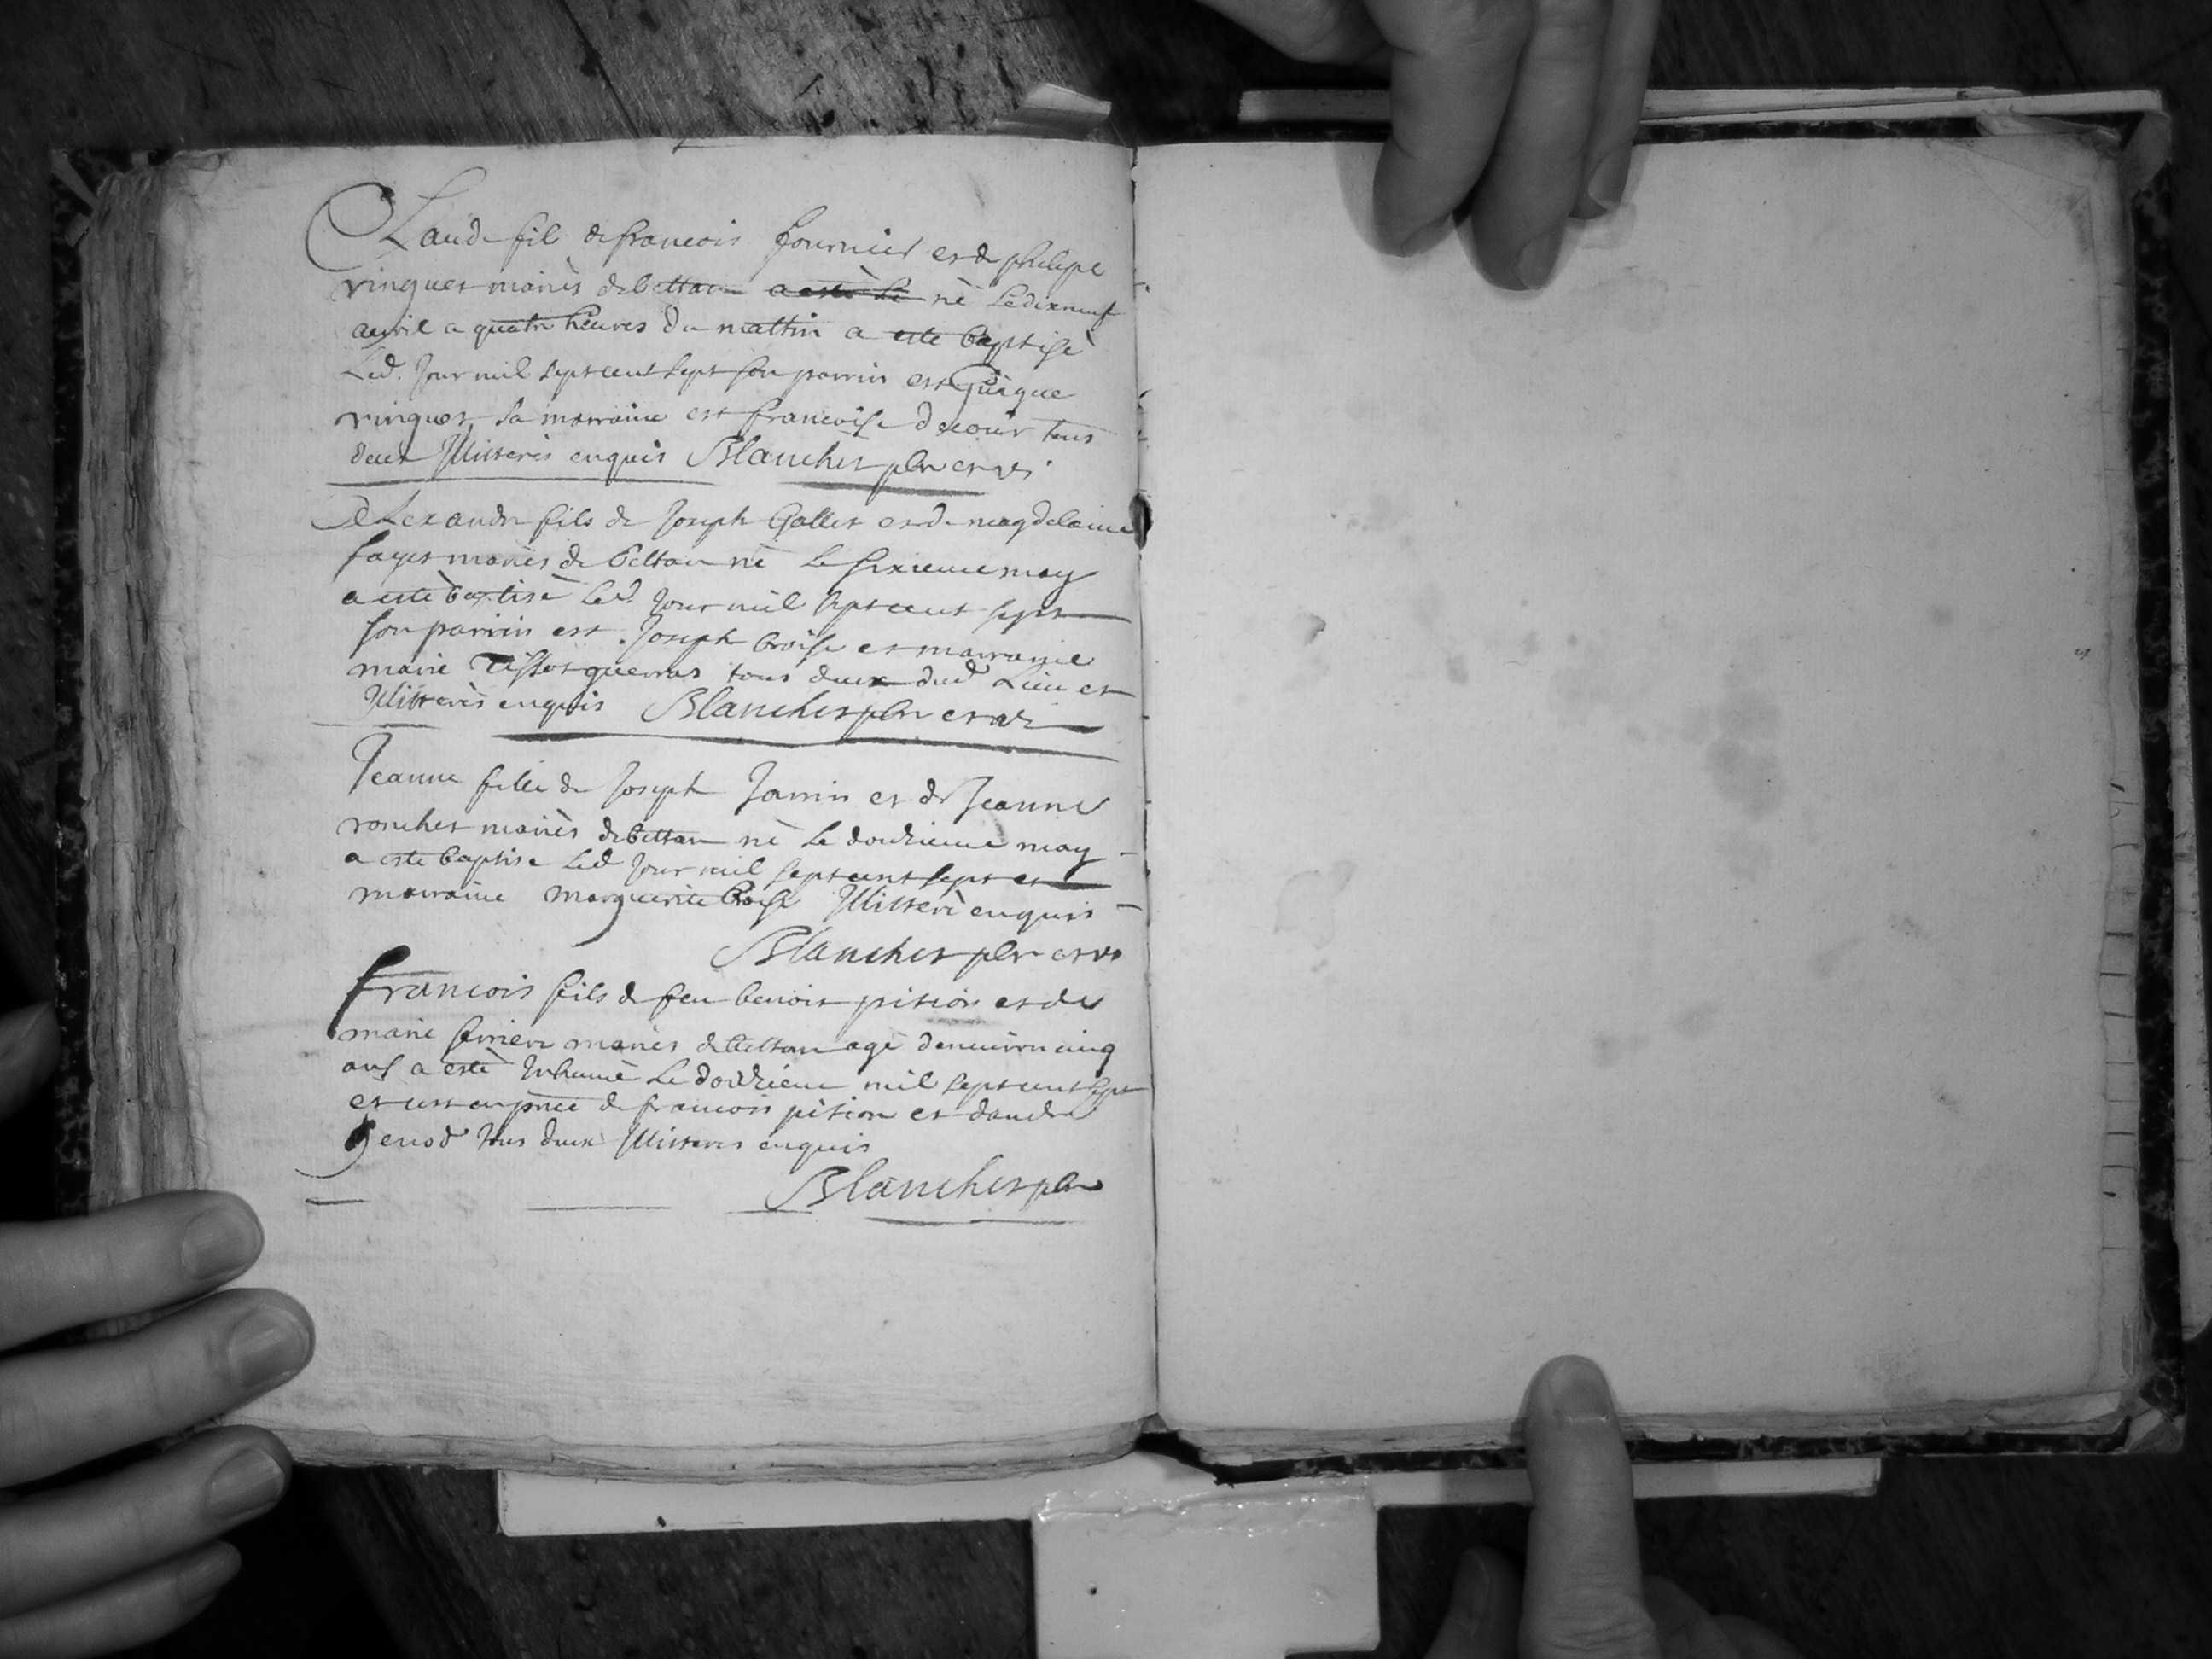 Claude fil de francois fournier et de philipe
vinguet mariès de bettan a estè le nè le dixneuf
avril a quatre heures du mattin a este baptisè
Led. Jour mil sept cent sept son parrin est
vinguet sa marraine est francoise decour tous
deux Illitterès enquis Blanchet pbr et vi
Alexandre fils de Joseph Gallet et de magdelaine
fayet mariès de bettan nè le sixieme may
a estè baptisè Led. Jour mil sept cent sept
son parrin est Joseph broise et marraine
marie Tissot tous deux dud Lieu et
Illitterès enquis Blanchet pbr et vi
Jeanne fille de Joseph Jannin et de Jeanne
ronchet mariès de bettan nè le douzieme may
a este baptise Led Jour mil sept cent sept et
marraine marguerite broise Illitterè enquis
Blanchet pbr et vi
francois fils de feu benoit pition et de
marie mariès de bettan agè denviron cinq
ans a estè Inhumè le douzieme mil sept cent sept
et cest en pnce de francois pition et dandre
genod tous deux Illitteres enquis
Blanchet pbr